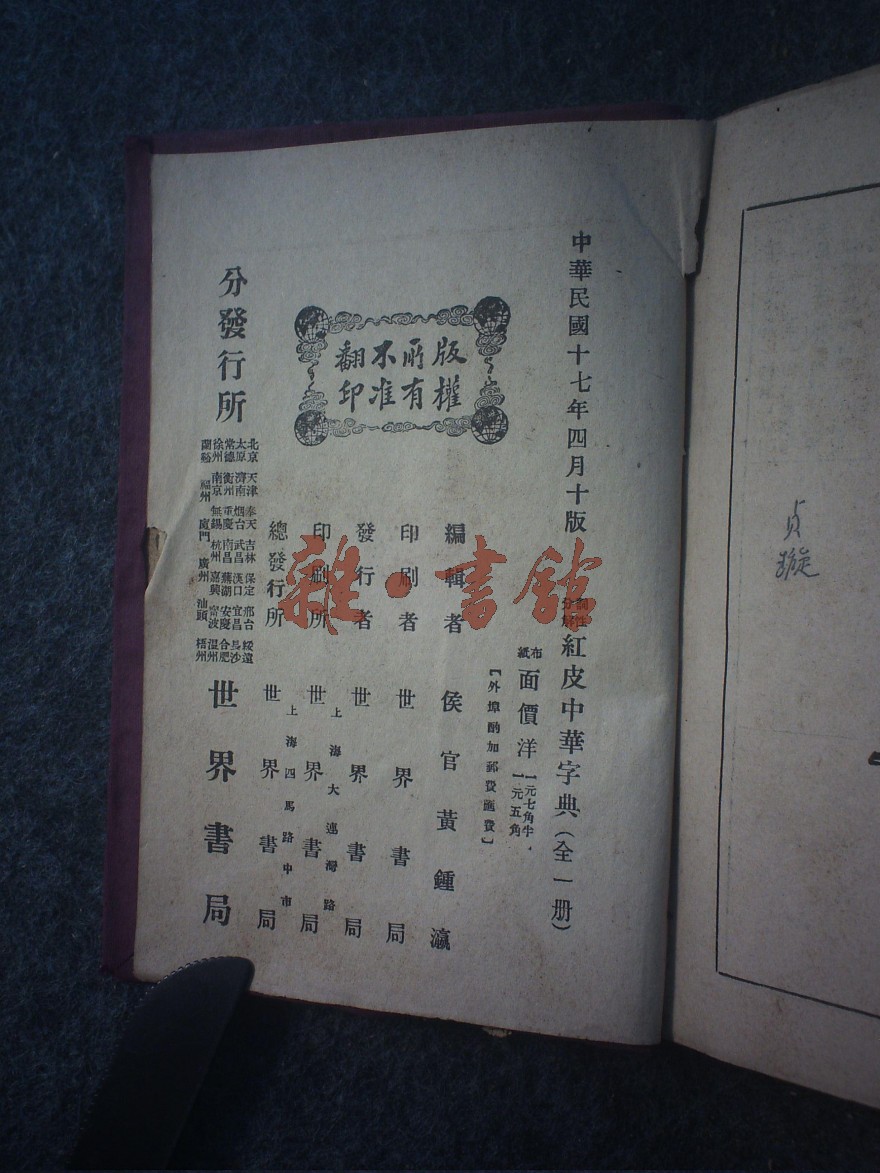 中華民國十七年四月十版
紅皮中華字典(全一册)
布紙面價洋
一元七角半
一元五角
【外埠酌加郵費匯費】
編輯者 侯官黃鍾瀛
印刷者 世界書局
發行者 世界書局
上海大連灣路
印刷所 世界書局
上海四馬路中市
總發行所 世界書局
版權所有
不准翻印
分發行所 世界書局
北京 天津 奉天 吉林 保定 邢台 綏遠
太原 濟南 烟台 武昌 漢口 宜昌 長沙
常德 衡州 重慶 南昌 蕪湖 安慶 合肥
徐州 南京 無錫 杭州 嘉興 甯波 溫州
蘭谿 福州 廈門 廣州 汕頭 梧州
貞
璇
雜·書館